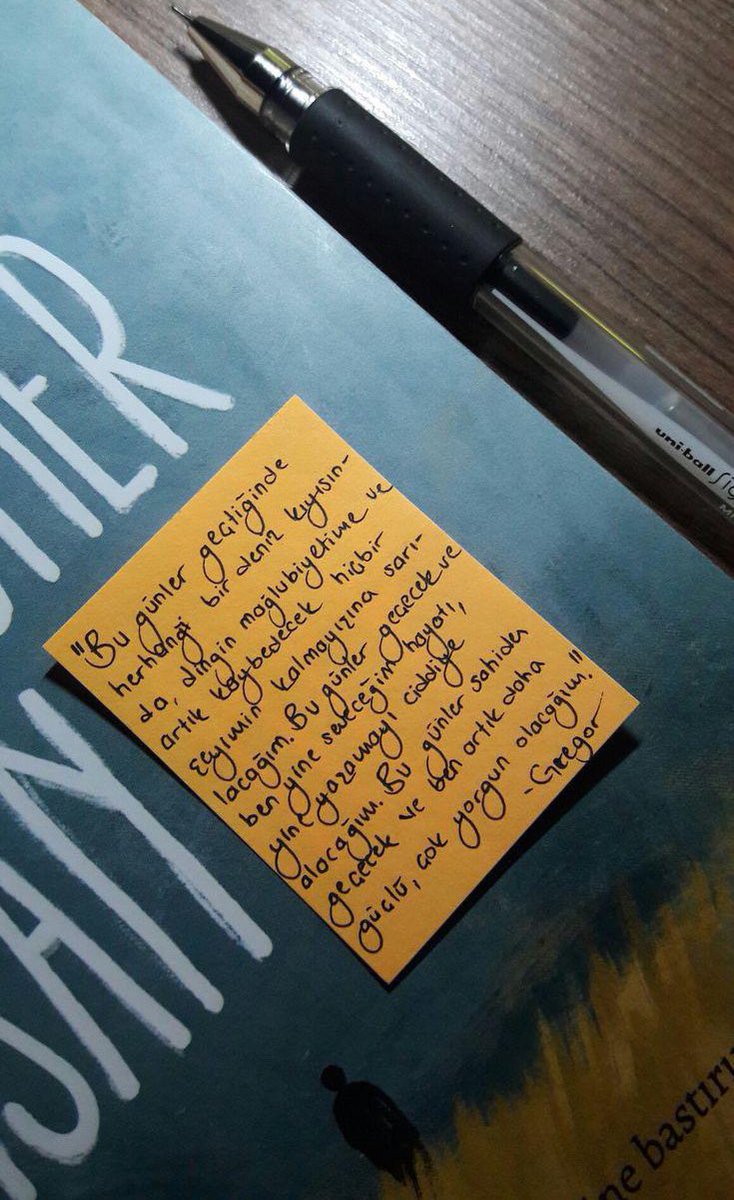 HER
SAN
"Bu günler geçtiğinde
herhangi bir deniz kıyısın-
da, dingin mağlubiyetime ve
artık kaybedecek hiçbir
şeyimin kalmayışına sarı-
lacağım. Bu günler geçecek ve
ben yine seveceğim hayatı,
yine yazamayı ciddiye
alacağım. Bu günler sahiden
geçecek ve ben artık daha
güçlü, çok yorgun olacağım."
-Gregor
uni-ball
ne bastıru